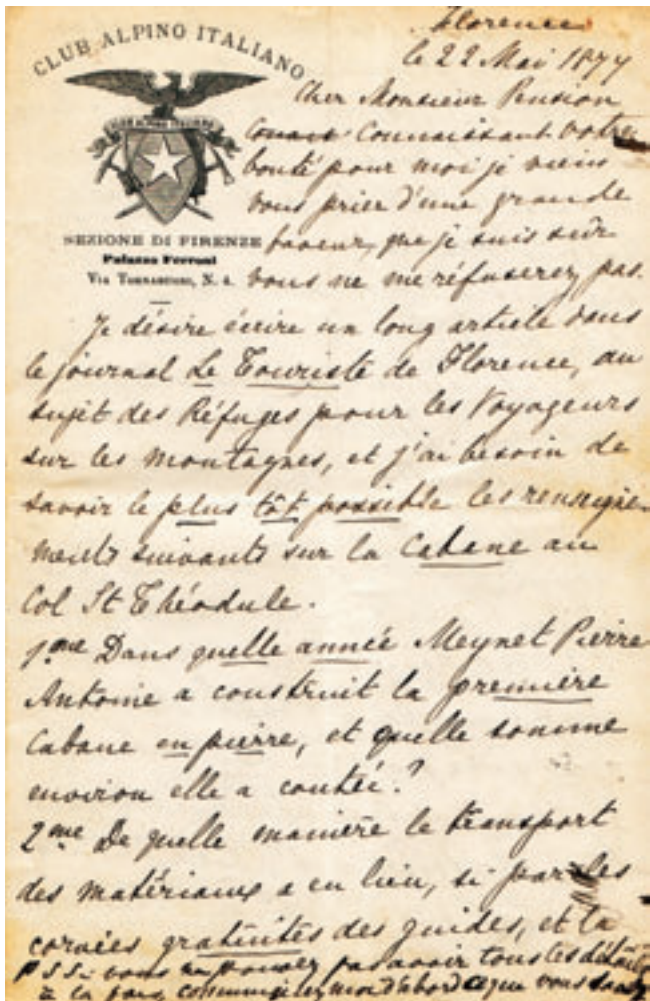 CLUB ALPINO ITALIANO
CLUB ALPINO ITALIANO
SEZIONE DI FIRENZE
Palazzo Ferroni
Via Tornabuoni, N. 4.
Florence
le 22 Mai 1877
Cher Monsieur Pension
Connaissant votre
bonté pour moi je viens
vous prier d'une grande
faveur, que je suis sûr
vous ne me réfuserez pas.
Je désire écrire un long article dans
le journal Le Touriste de Florence, au
sujet des Réfuges pour les Voyageurs
sur les montagnes, et j'ai besoin de
savoir le plus tôt possible les renseigne-
ments suivants sur la Cabane au
Col St Théodule.
1.me Dans quelle année Meynet Pierre
Antoine a construit la première
Cabane en pierre, et quelle somme
environ elle a coutée?
2me De quelle manière le transport
des matériaux a eu lieu, si par les
corvées gratuites des guides, et la
P S Si vous ne pouvez pas avoir tous les détails
à la fois, communiquez moi d'abord ce que vous savez